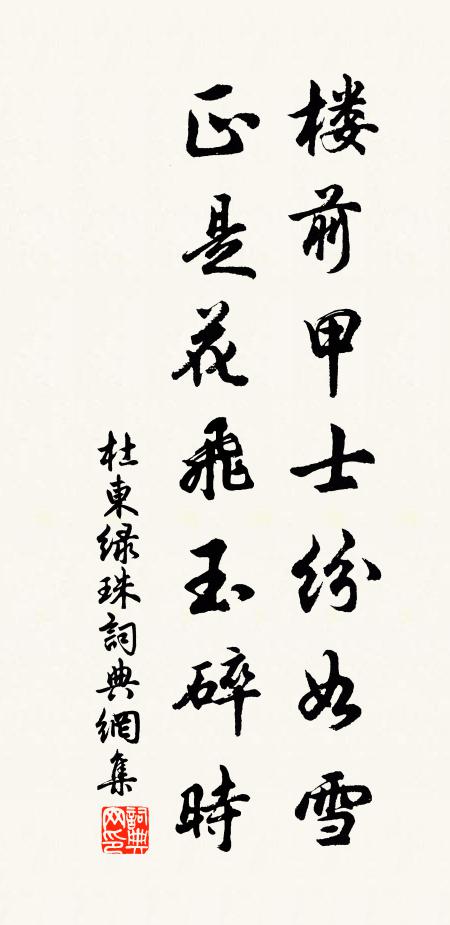 楼前甲士纷如雪
正是花飛玉碎時
杜東绿珠詞典網集
詞典网印